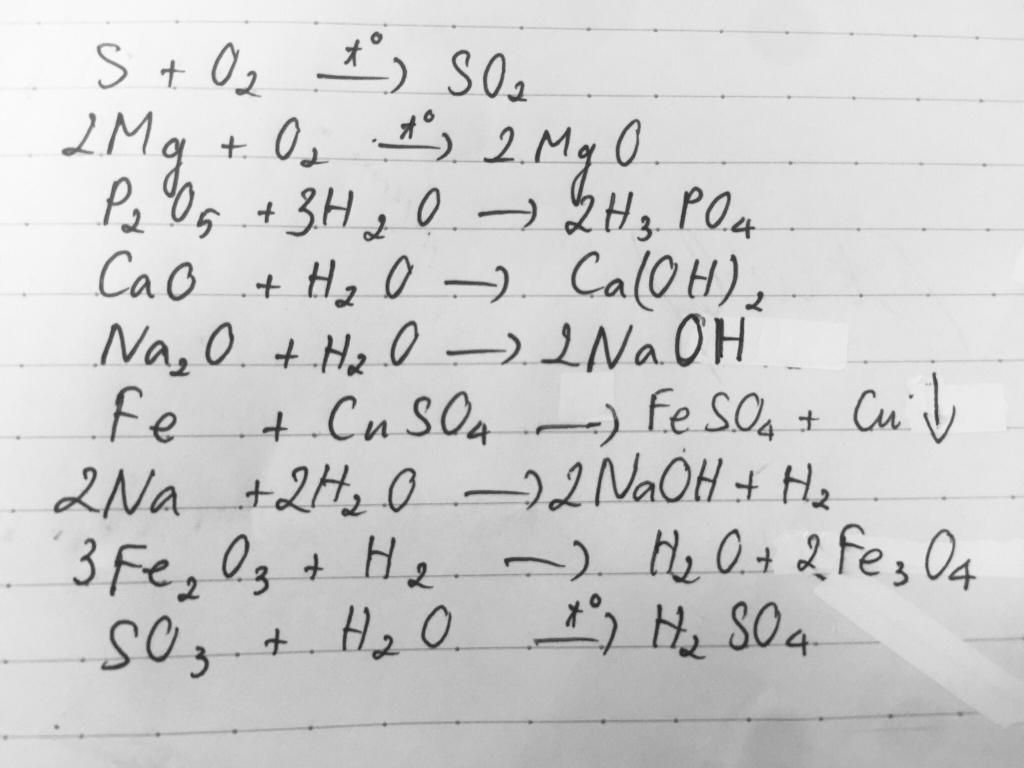 S + O₂ →(t°) SO₂
2Mg + O₂ →(t°) 2MgO
P₂O₅ + 3H₂O → 2H₃PO₄
CaO + H₂O → Ca(OH)₂
Na₂O + H₂O → 2NaOH
Fe + CuSO₄ → FeSO₄ + Cu ↓
2Na + 2H₂O → 2NaOH + H₂
3Fe₂O₃ + H₂ → H₂O + 2Fe₃O₄
SO₃ + H₂O →(t°) H₂SO₄